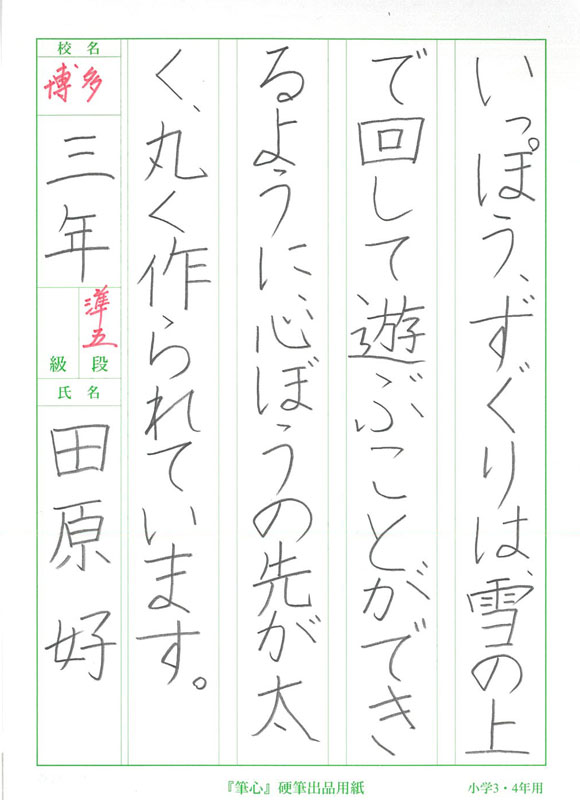 いっぽう、ずぐりは、雪の上
で回して遊ぶことができ
るように、心ぼうの先が太
く、丸く作られています。
校名
博多
三年
準五
級段
氏名
田原好
『筆心』硬筆出品用紙
小学3・4年用